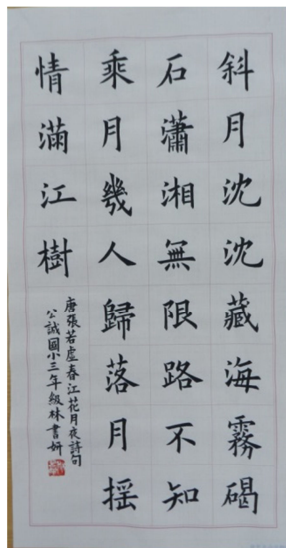 斜月沈沈藏海霧碣
石瀟湘無限路不知
乘月幾人歸落月搖
情滿江樹
唐張若虛春江花月夜詩句
公誠國小三年級林書妍